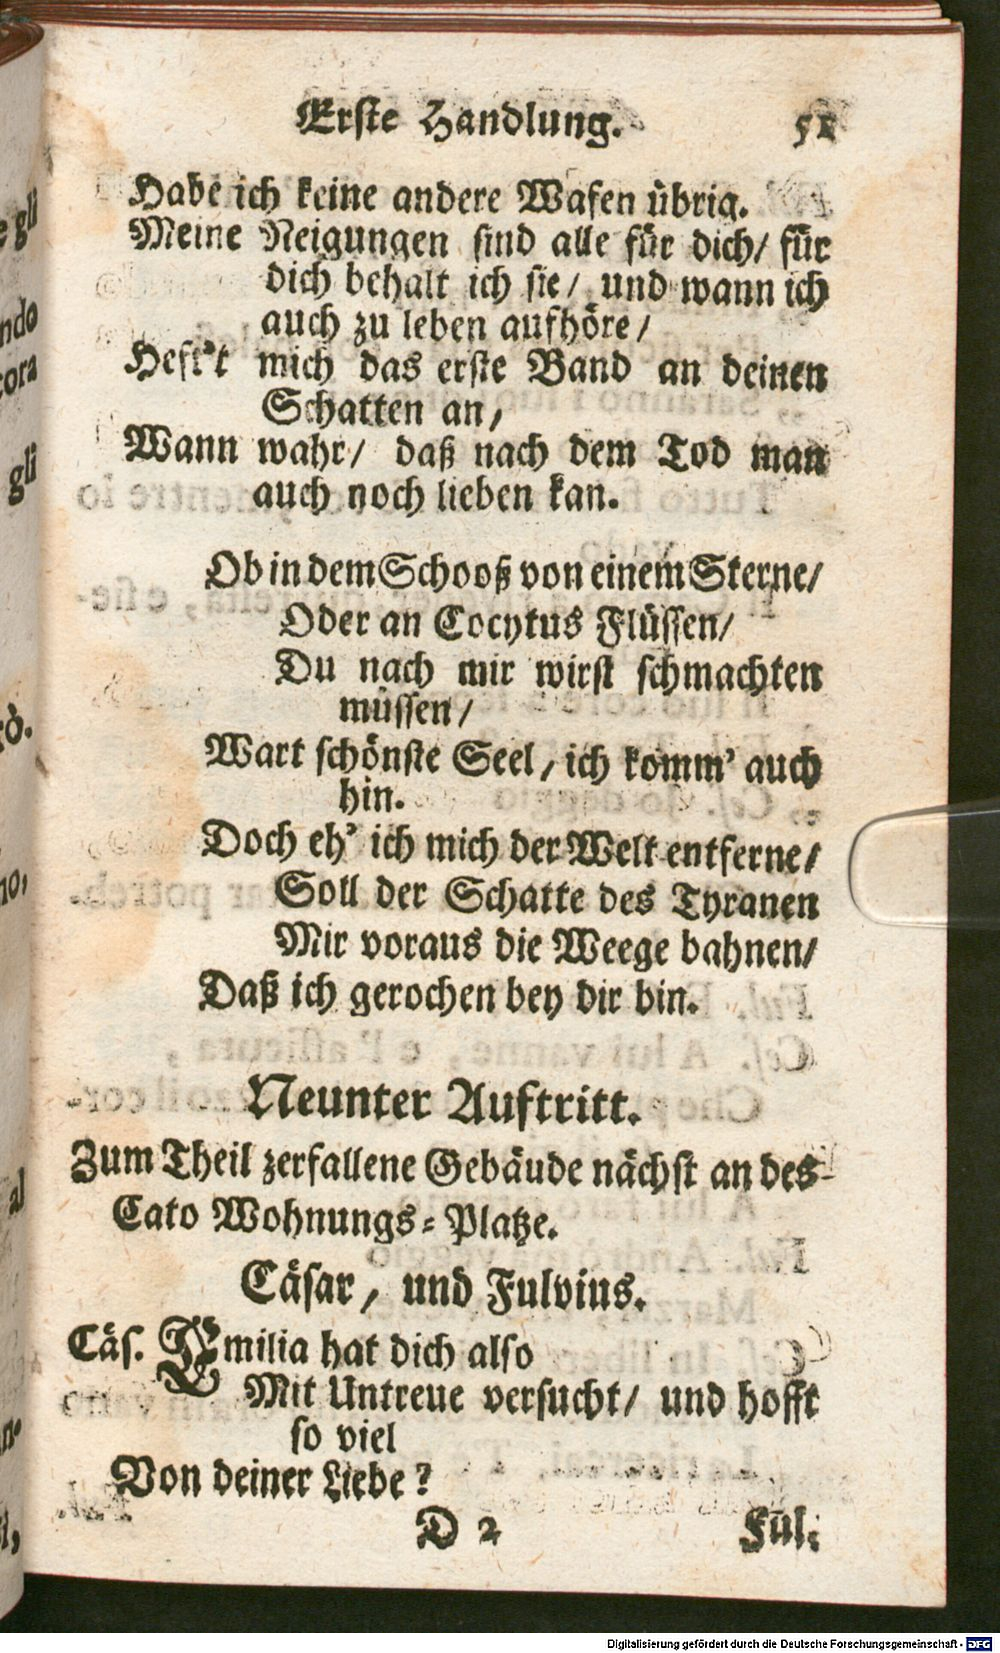 Erste Handlung. 51
Habe ich keine andere Wafen übrig.
Meine Neigungen sind alle für dich/ für
dich behalt ich sie/ und wann ich
auch zu leben aufhöre/
Heft't mich das erste Band an deinen
Schatten an/
Wann wahr/ daß nach dem Tod man
auch noch lieben kan.
Ob in dem Schooß von einem Sterne/
Oder an Cocytus Flüssen/
Du nach mir wirst schmachten
müssen/
Wart schönste Seel/ ich komm' auch
hin.
Doch eh' ich mich der Welt entferne/
Soll der Schatte des Tyranen
Mir voraus die Weege bahnen/
Daß ich gerochen bey dir bin.
Neunter Auftritt.
Zum Theil zerfallene Gebäude nächst an des
Cato Wohnungs-Platze.
Cäsar, und Fulvius.
Cäs. Emilia hat dich also
Mit Untreue versucht/ und hofft
so viel
Von deiner Liebe?
D 2 Ful.
e gli
ndo
cora
gli
rò.
no,
al
Digitalisierung gefördert durch die Deutsche Forschungsgemeinschaft - DFG